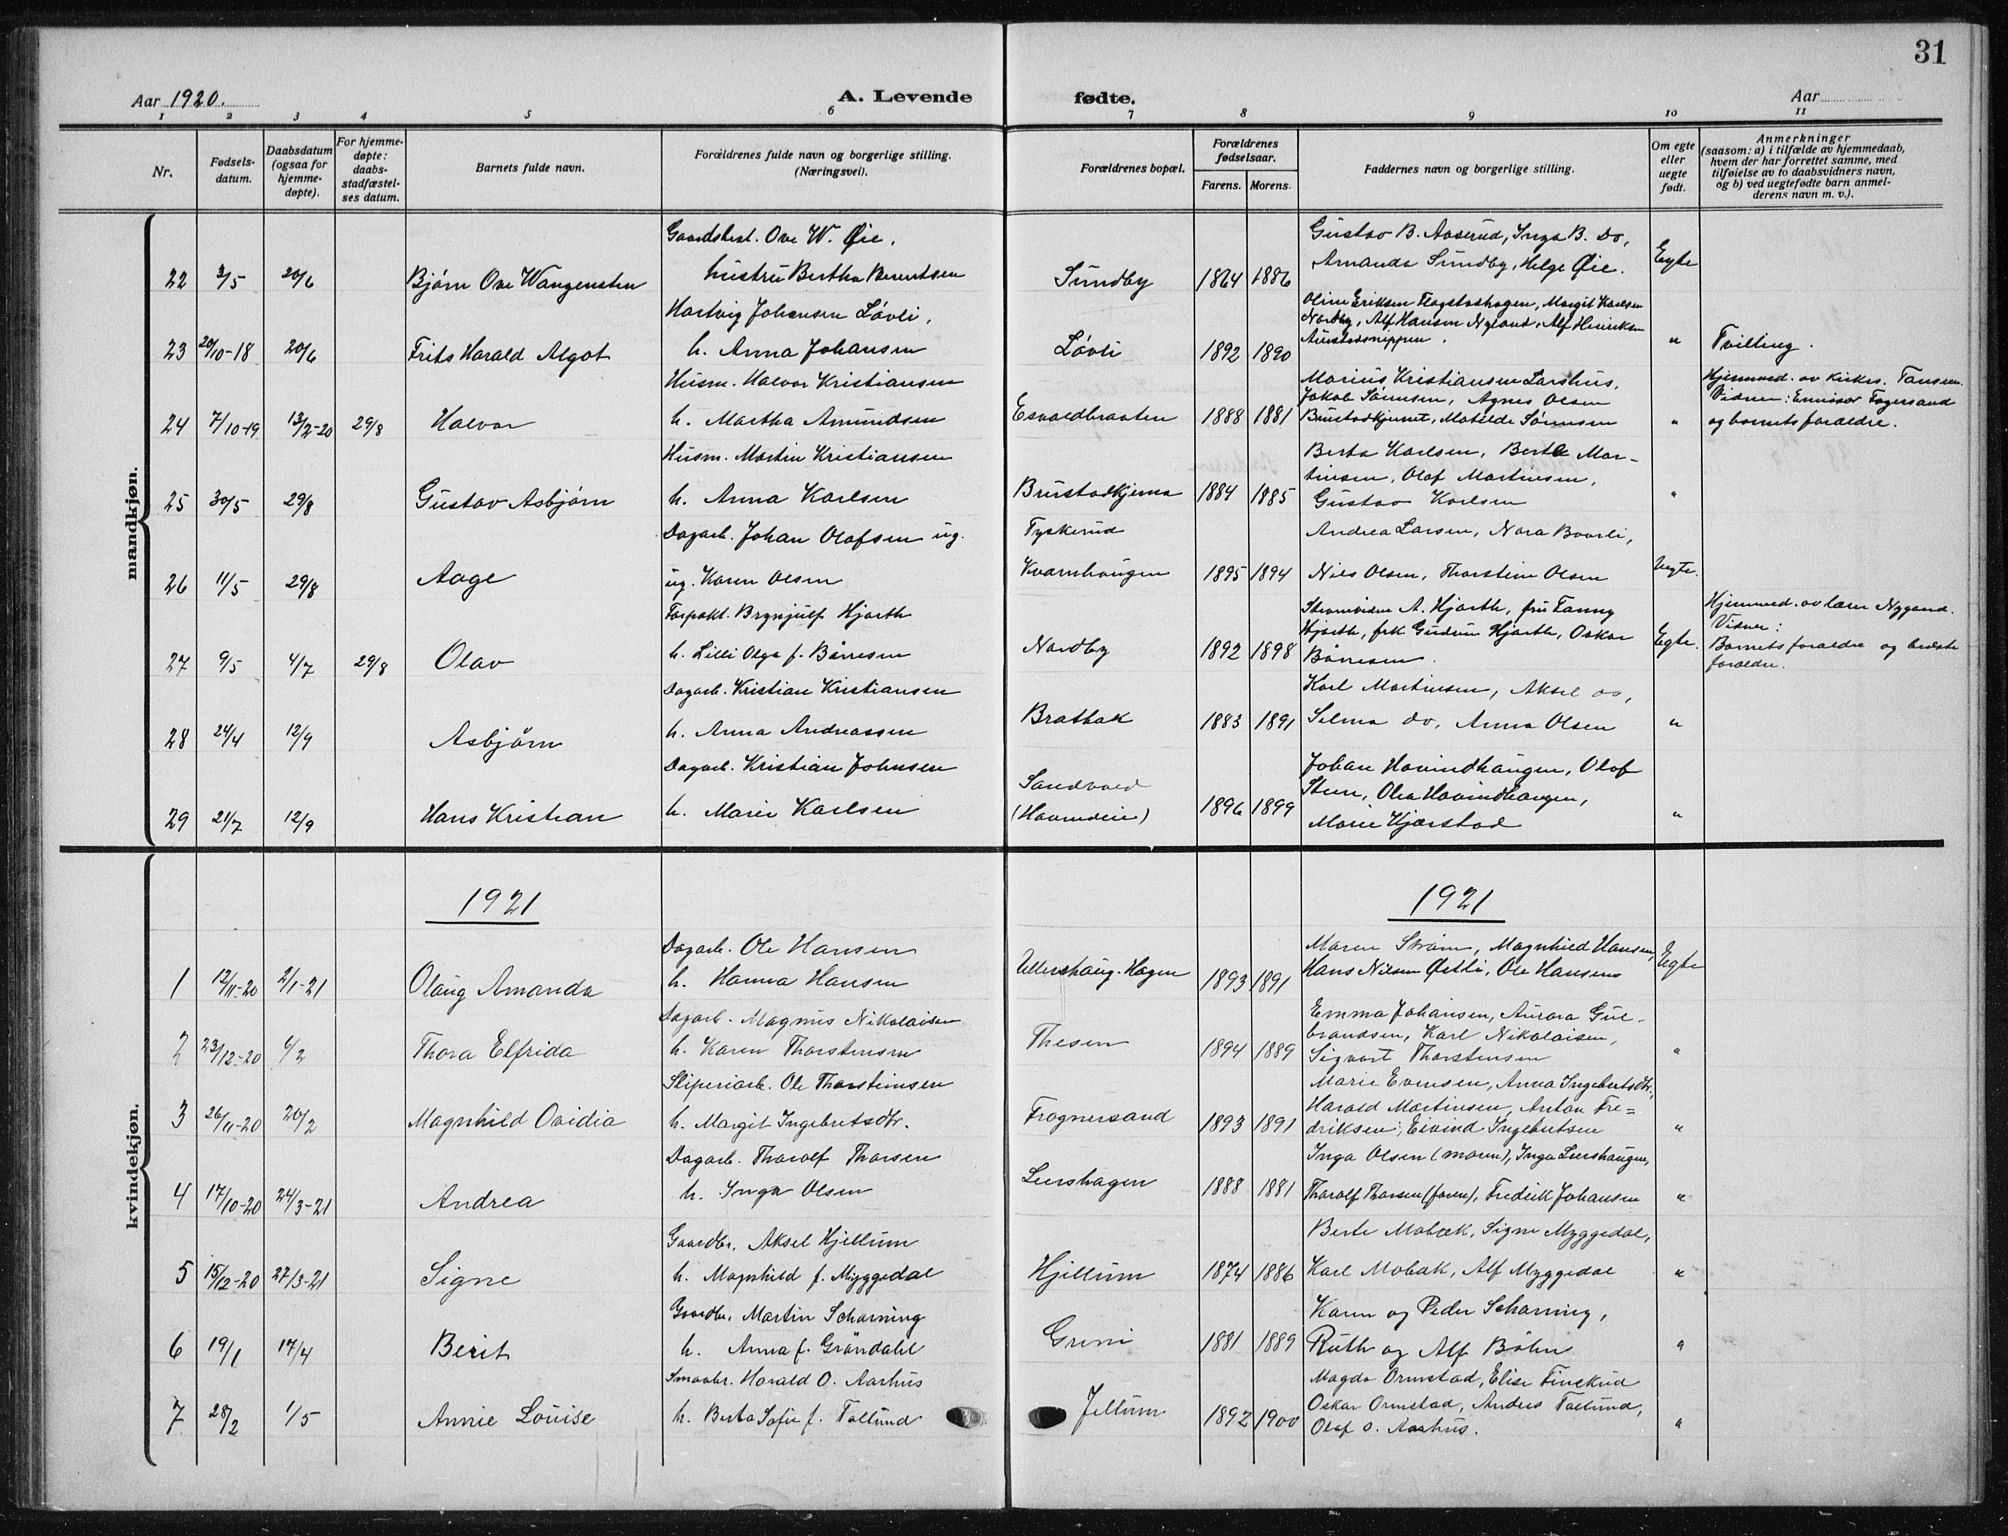 31
Aar 1920.
A. Levende fødte.
Aar
1 2 3 4 5 6 7 8 9 10 11
Nr.
Fødsels-
datum.
Daabsdatum
(ogsaa for
hjemme-
døpte).
For hjemme-
døpte:
daabs-
stadfæstel-
ses datum.
Barnets fulde navn.
Forældrenes fulde navn og borgerlige stilling.
(Næringsvei).
Forældrenes bopæl.
Forældrenes
fødselsaar.
Farens. Morens.
Faddernes navn og borgerlige stilling.
Om egte
eller
uegte
født.
Anmerkninger
(saasom: a) i tilfælde av hjemmedaab,
hvem der har forrettet samme, med
tilføielse av to daabsvidners navn,
og b) ved uegtefødte barn anmel-
derens navn m. v.).
mandkjøn.
22 3/5 20/6 Bjørn Ove Wangensten
Gaardsbest. Ove W. Øie,
hustru Bertha Berentsen
Sundby 1864 1886
Gustav B. Aaserud, Inga B. Do,
Amanda Sundby, Helge Øie.
Egte
23 20/10-18 20/6 Frits Harald Algot
Hartvig Johansen Løvli,
h. Anna Johansen
Løvli 1892 1890
Oline Eriksen Flagstadhagen, Margit Karlsen
Nordby, Alf Hansen Nyland, Alf Henriksen
"
Tvilling.
24 7/10-19 13/2-20 29/8 Halvor
Husm. Halvor Kristiansen
h. Martha Amundsen
Esvaldbraaten 1888 1881
Marius Kristiansen Larshus,
Jakob Sørensen, Agnes Olsen
Brustadkjernet, Matilde Sørensen
"
Hjemmed. av kirkes. Fansen.
Vidner: Emissær Fagersand
og barnets forældre.
25 30/5 29/8 Gustav Asbjørn
Husm. Martin Kristiansen
h. Anna Karlsen
Brustadkjerna 1884 1885
Berta Karlsen, Berte Mar-
tinsen, Olaf Martinsen,
Gustav Karlsen
"
26 11/5 29/8 Aage
Dagarb. Johan Olafsen ug.
ug. Karen Olsen
Tyskerud
Kvarnhaugen 1895 1894
Andrea Larsen, Nora Baarli,
Nils Olsen, Thorstein Olsen
Uegte.
27 9/5 4/7 29/8 Olav
Forpakt. Brynjulf Hjorth
h. Lilli Olga f. Børresen
Nordby 1892 1898
A. Hjorth, fru Fanny
Hjorth, frk Gudrun Hjorth, Oskar
Børresen.
Egte.
Hjemmed. av lærer Nygaard.
Vidner:
Barnets forældre og bedste
forældre.
28 24/4 12/9 Asbjørn
Dagarb. Kristian Kristiansen
h. Anna Andreassen
Bratbak 1883 1891
Karl Martinsen, Aksel do,
Selma do, Anna Olsen
"
29 21/7 12/9 Hans Kristian
Dagarb. Kristian Johnsen
h. Marie Karlsen
Sandvold
(Havneeie) 1896 1899
Johan Hovindhaugen, Olaf
Steen, Olea Hovindhaugen,
Marie Kjærstad
"
kvindekjøn.
1921 1921
1 12/11-20 2/1-21 Olaug Amanda
Dagarb. Ole Hansen
h. Hanna Hansen
Ullershaug-Hagen 1893 1891
Maren Strøm, Magnhild Hansen,
Hans Nilsen Østli, Ole Hansens
Egte
2 23/12-20 6/2 Thora Elfrida
Dagarb. Magnus Nikolaisen
h. Karen Thorstensen
Thesen 1894 1889
Emma Johansen, Aurora Gul-
brandsen, Karl Nikolaisen,
Sigvart Thorstensen
"
3 26/11-20 20/2 Magnhild Ovidia
Sliperiarb. Ole Thorstensen
h. Margit Ingebretsdtr.
Frognersand 1893 1891
Marie Evensen, Anna Ingebretsdtr,
Harald Martinsen, Anton Fre=
driksen, Eivind Ingebretsen
"
4 17/10-20 24/3-21 Andrea
Dagarb. Tharalf Tharsen
h. Inga Olsen
Leershagen 1888 1881
Inga Olsen (moren), Inga Leershaugen,
Tharalf Tharsen (faren), Fredrik Johansen
"
5 15/12-20 27/3-21 Signe
Gaardbr. Aksel Hjellum
h. Magnhild f. Myggedal
Hjellum 1874 1886
Berte Mobæk, Signe Myggedal,
Karl Mobæk, Alf Myggedal
"
6 19/1 17/4 Berit
Gaardbr. Martin Scharning
h. Anna f. Grøndahl
Greni 1881 1889
Karen og Peder Scharning,
Ruth og Alf Bøhn
"
7 28/2 1/5 Annie Louise
Smaabr. Harald O. Aarhus
h. Berta Sofie f. Tallund
Jellum 1892 1900
Magda Ormstad, Elise Finckud
Oskar Ormstad, Anders Tallund,
Olaf O. Aarhus.
"